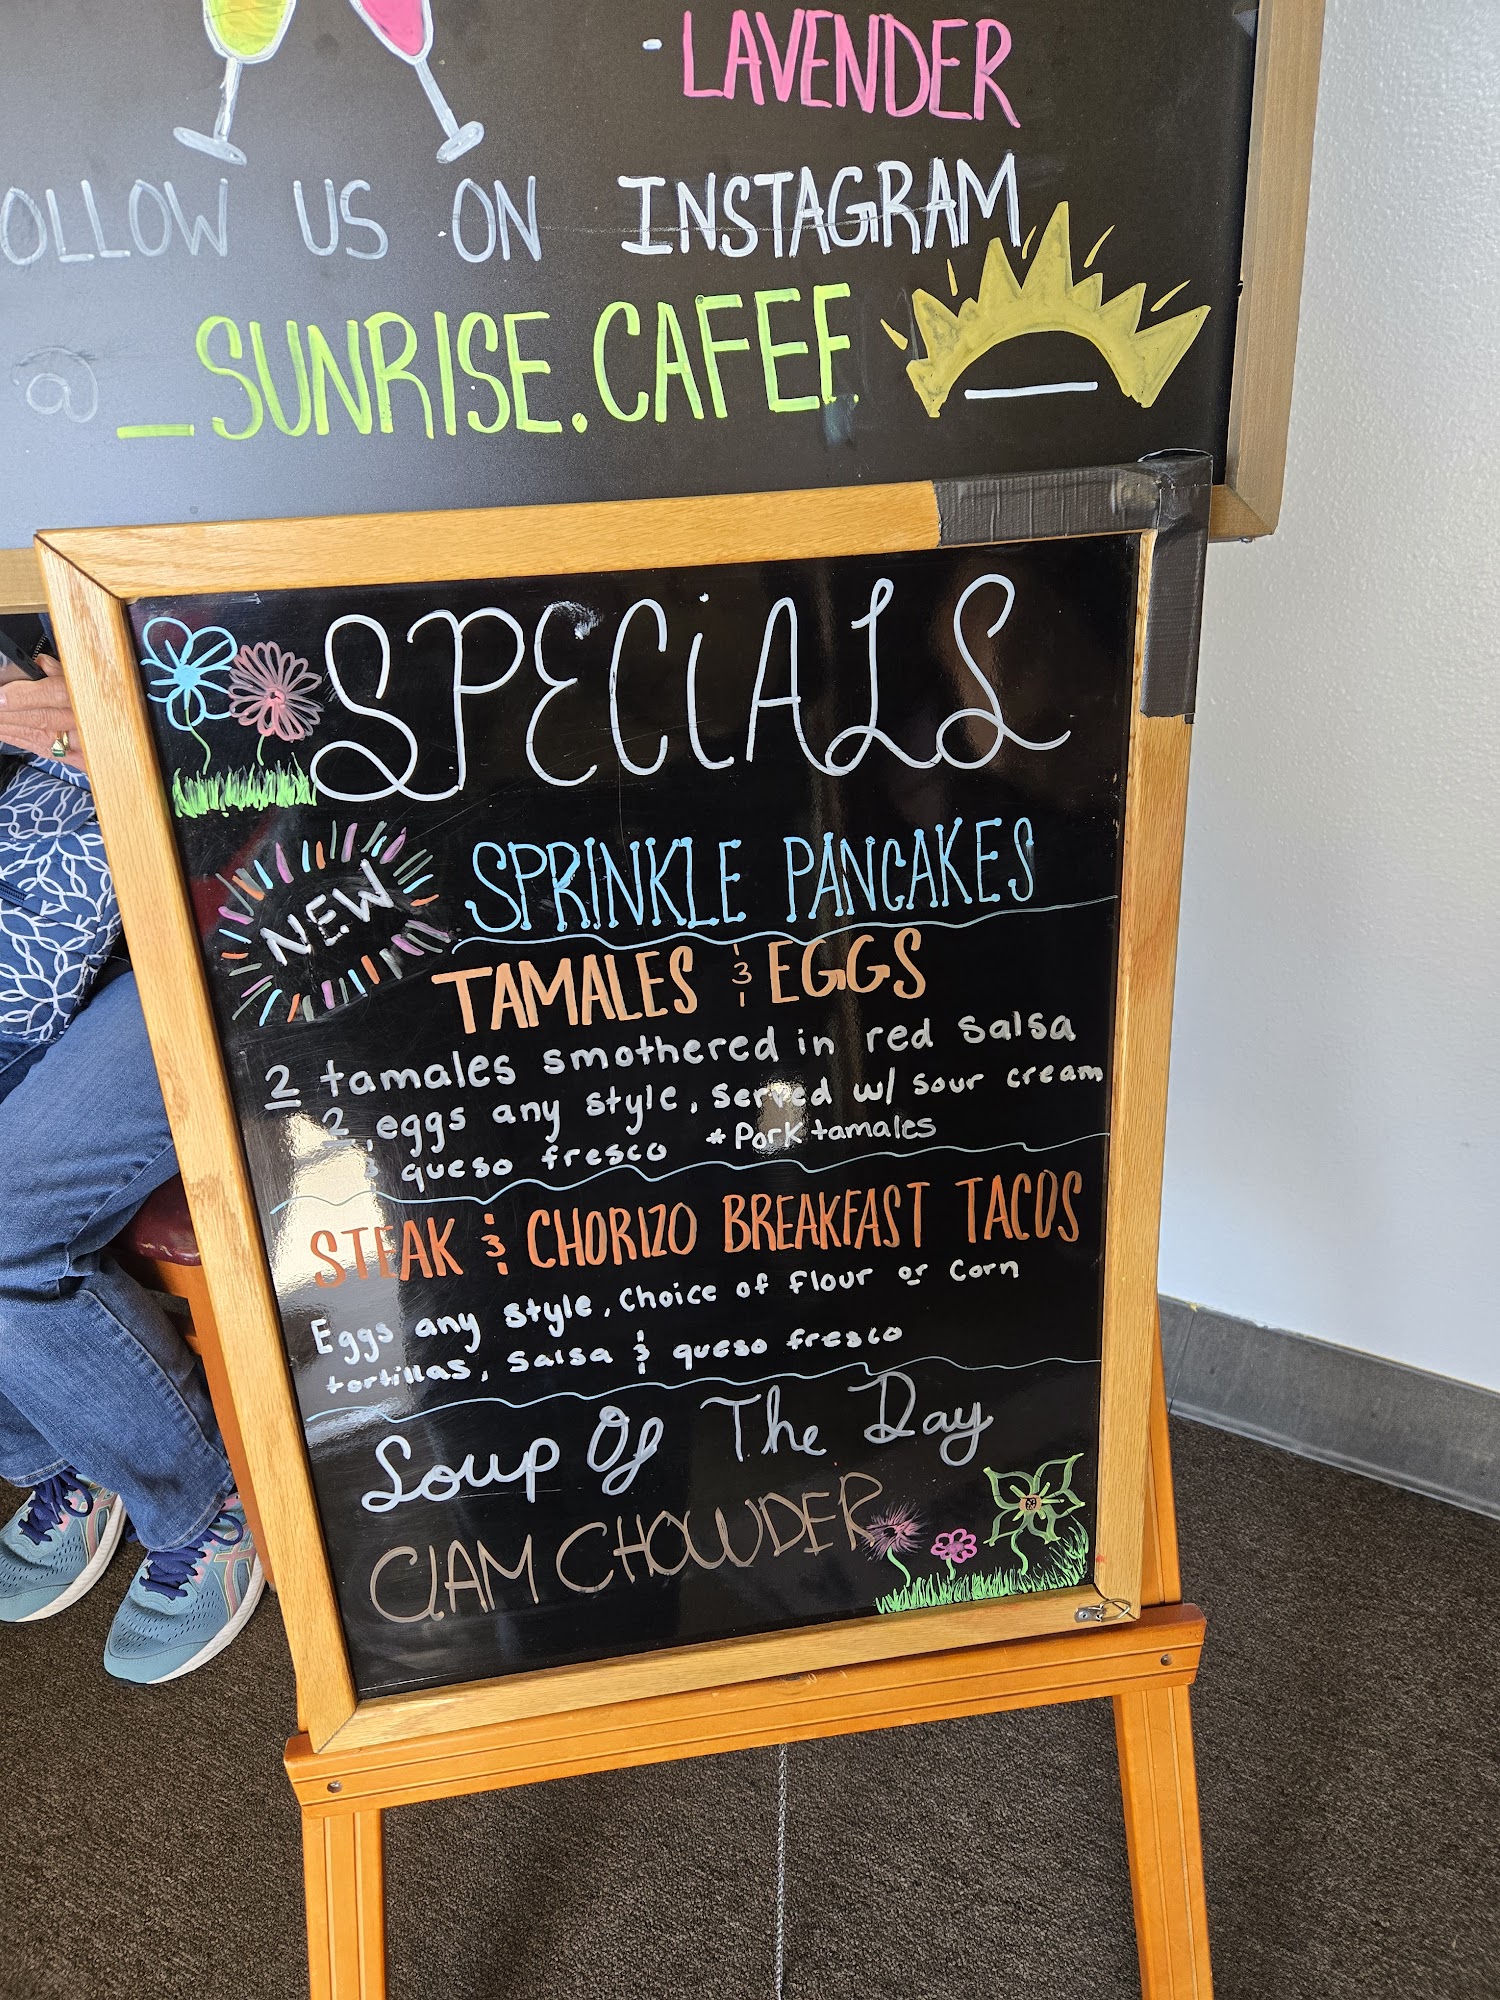 - LAVENDER
OLLOW US ON INSTAGRAM
@_SUNRISE.CAFEE
SPECiALS
NEW
SPRINKLE PANCAKES
TAMALES & EGGS
2 tamales smothered in red salsa
2 eggs any style, served w/ sour cream
& queso fresco *Pork tamales
STEAK & CHORIZO BREAKFAST TACOS
Eggs any style, choice of flour or corn
tortillas, salsa & queso fresco
Soup Of The Day
ClAM CHOWDER